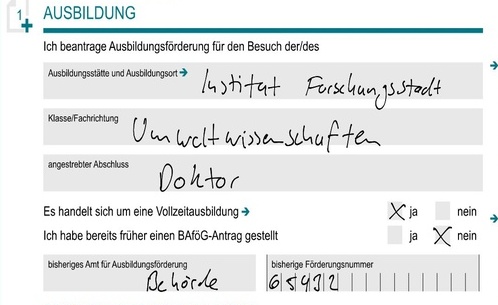 1 AUSBILDUNG
Ich beantrage Ausbildungsförderung für den Besuch der/des
Ausbildungsstätte und Ausbildungsort → Institut Forschungsstadt
Klasse/Fachrichtung Umweltwissenschaften
angestrebter Abschluss Doktor
Es handelt sich um eine Vollzeitausbildung → X ja nein
Ich habe bereits früher einen BAföG-Antrag gestellt ja X nein
bisheriges Amt für Ausbildungsförderung bisherige Förderungsnummer
Behörde 65432